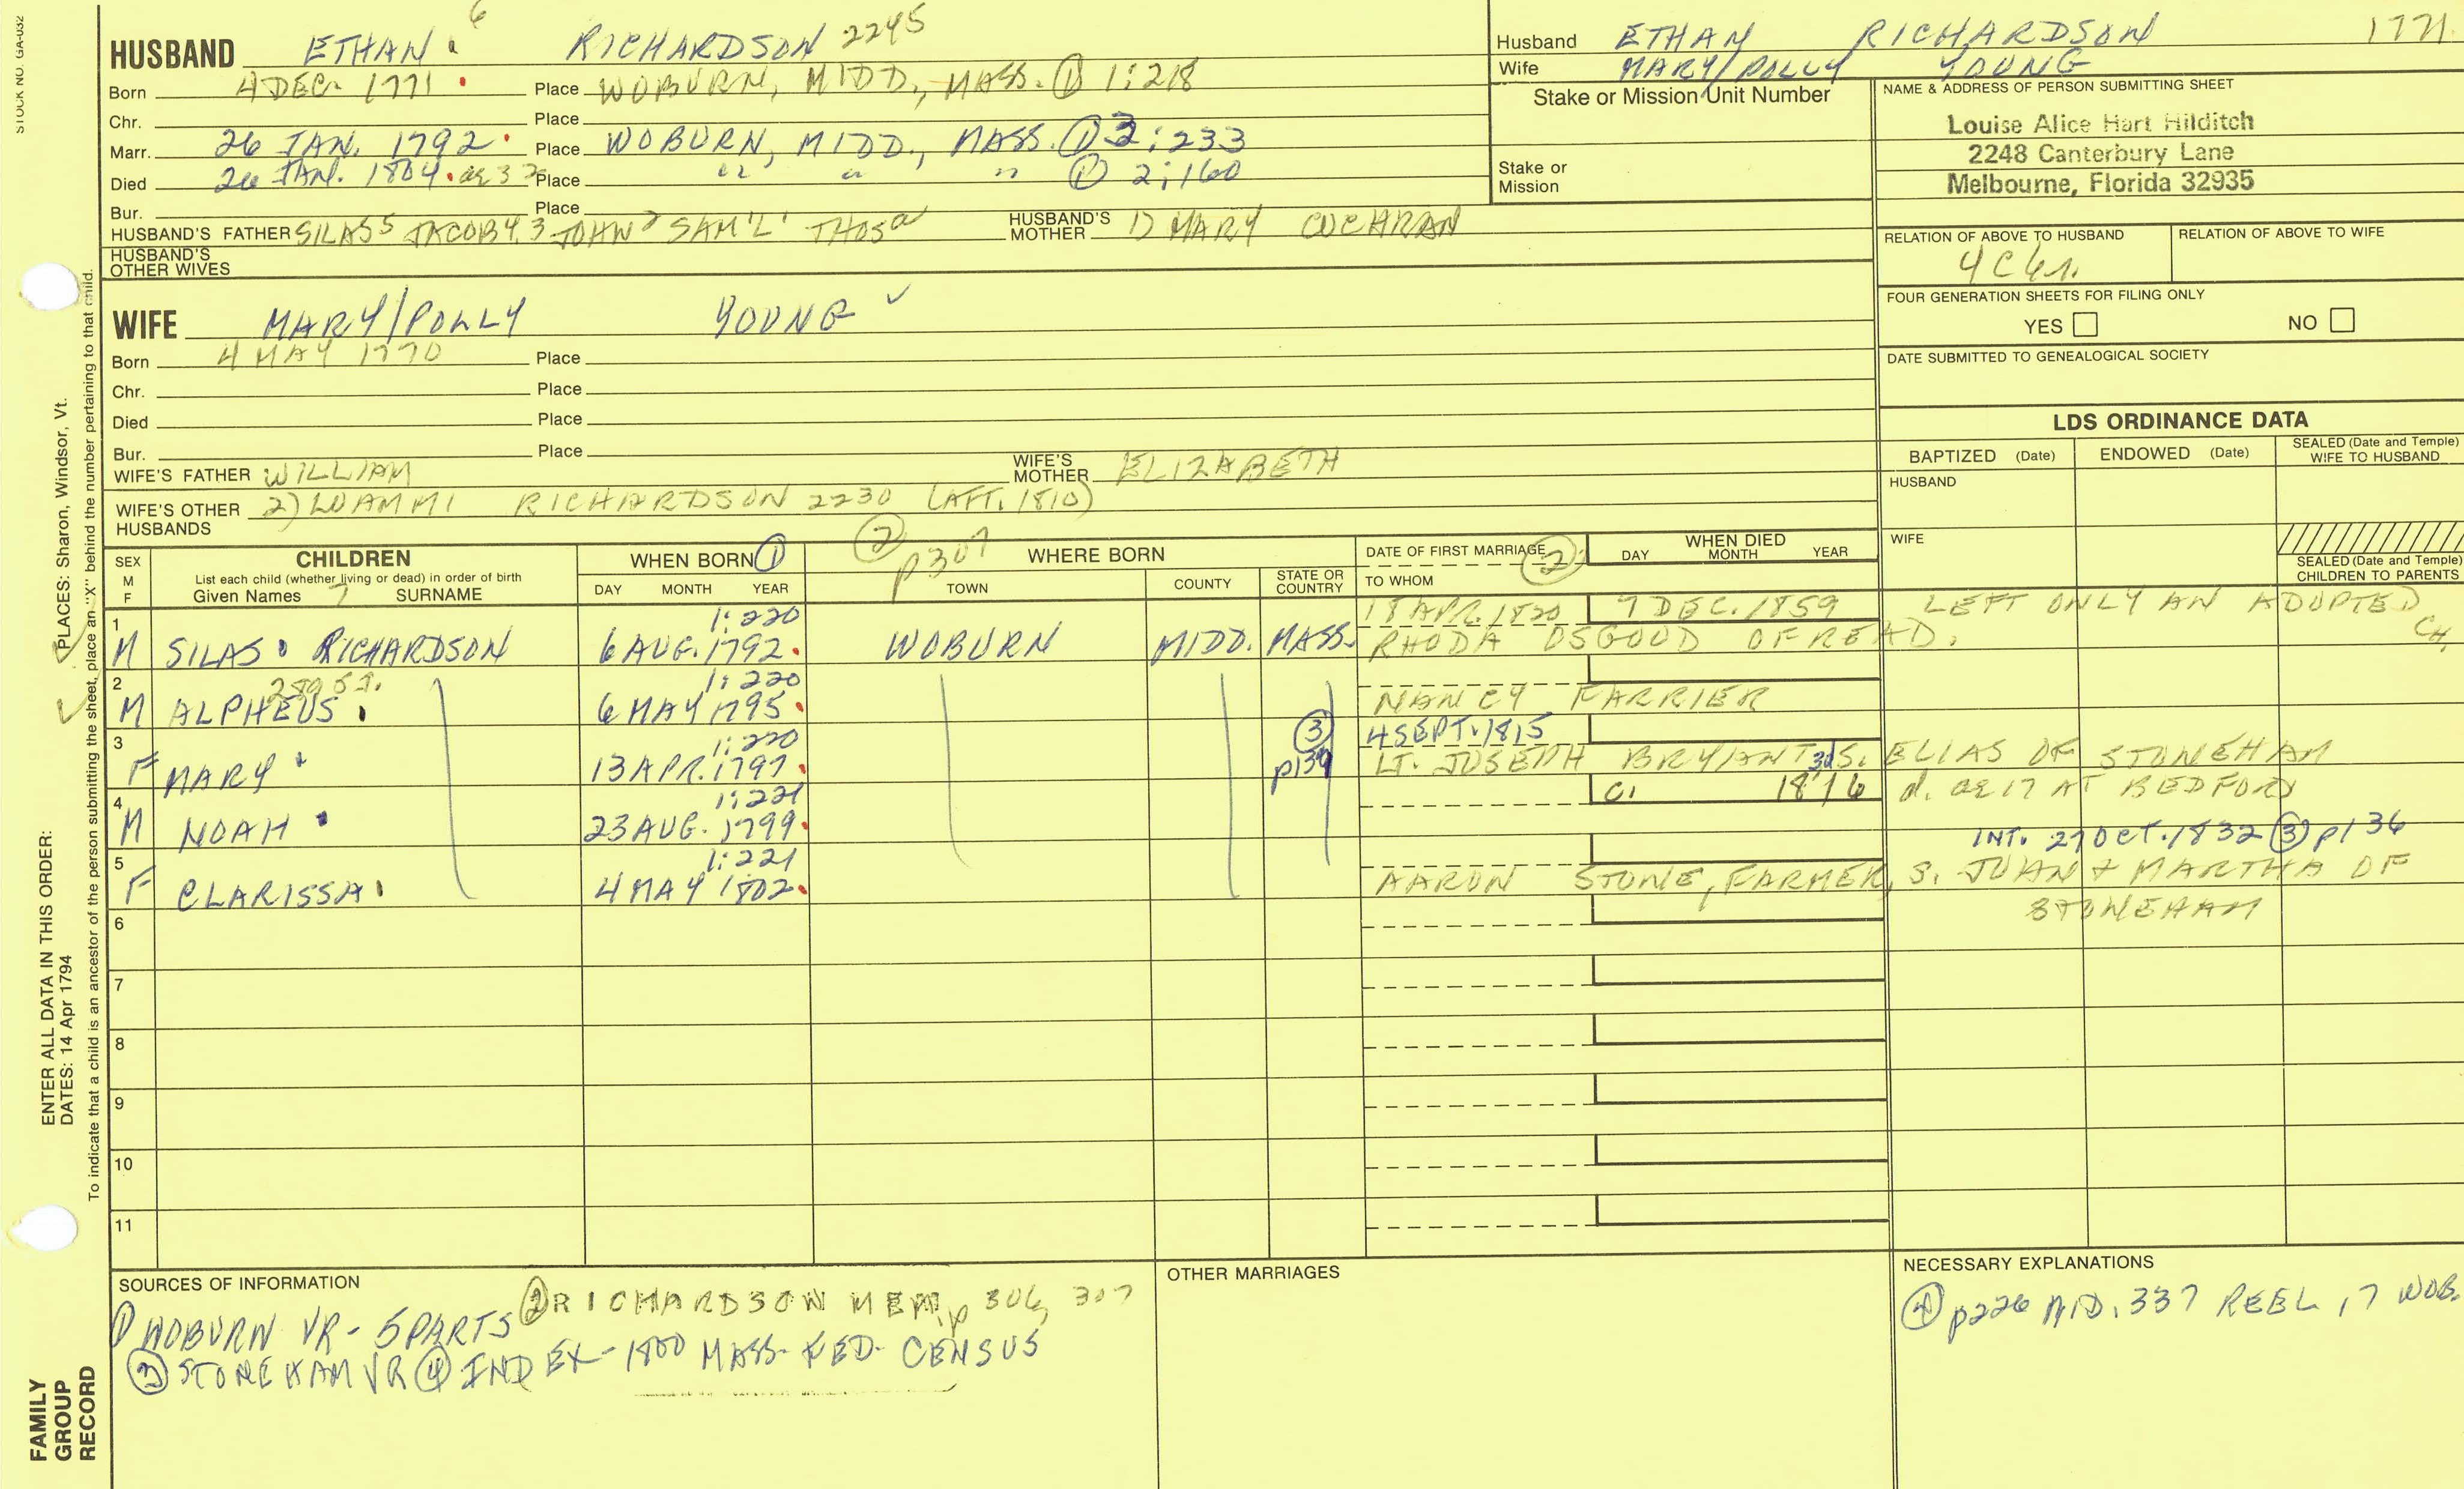 STOCK NO. GA-032
6
HUSBAND ETHAN RICHARDSON 2245
Born 4 DEC. 1771 Place WOBURN, MIDD., MASS. ① 1:218
Chr. Place
Marr. 26 JAN. 1792 Place WOBURN, MIDD., MASS. ① 3:233
Died 26 JAN. 1804 ae 32 Place " " " ① 2:160
Bur. Place
HUSBAND'S FATHER SILAS5 JACOB4 3 JOHN2 SAM'L1 THOSa HUSBAND'S MOTHER 1) MARY COCHRAN
HUSBAND'S OTHER WIVES
Husband ETHAN RICHARDSON 1771
Wife MARY/POLLY YOUNG
Stake or Mission Unit Number
Stake or Mission
NAME & ADDRESS OF PERSON SUBMITTING SHEET
Louise Alice Hart Hilditch
2248 Canterbury Lane
Melbourne, Florida 32935
RELATION OF ABOVE TO HUSBAND RELATION OF ABOVE TO WIFE
FOUR GENERATION SHEETS FOR FILING ONLY
YES NO
DATE SUBMITTED TO GENEALOGICAL SOCIETY
WIFE MARY/POLLY YOUNG ✓
Born 4 MAY 1770 Place
Chr. Place
Died Place
Bur. Place
WIFE'S FATHER WILLIAM WIFE'S MOTHER ELIZABETH
WIFE'S OTHER HUSBANDS 2) LOAMMI RICHARDSON 2230 (AFT. 1810)
LDS ORDINANCE DATA
BAPTIZED (Date) ENDOWED (Date) SEALED (Date and Temple) WIFE TO HUSBAND
HUSBAND
WIFE
SEALED (Date and Temple) CHILDREN TO PARENTS
SEX M F
CHILDREN
List each child (whether living or dead) in order of birth
Given Names 7 SURNAME
WHEN BORN ①
DAY MONTH YEAR
② p307 WHERE BORN
TOWN COUNTY STATE OR COUNTRY
DATE OF FIRST MARRIAGE ②
TO WHOM
WHEN DIED
DAY MONTH YEAR
1 1:220 18 APR. 1820 9 DEC. 1859 LEFT ONLY AN ADOPTED CH.
M SILAS RICHARDSON 6 AUG. 1792 WOBURN MIDD. MASS. RHODA OSGOOD OF READ.
2 1:220
M ALPHEUS 6 MAY 1795 NANCY FARRIER
3 1:220 ③ p139 4 SEPT. 1815
F MARY 13 APR. 1797 LT. JOSEPH BRYANT 3d S. ELIAS OF STONEHAM
4 1:221 C. 1816 d. ae 17 AT BEDFORD
M NOAH 23 AUG. 1799
5 1:221 INT. 27 OCT. 1832 ③ p136
F CLARISSA 4 MAY 1802 AARON STONE, FARMER, S. JOHN + MARTHA OF
STONEHAM
6
7
8
9
10
11
SOURCES OF INFORMATION
① WOBURN VR - 5 PARTS ② RICHARDSON MEM. p 306, 307
③ STONEHAM VR ④ INDEX - 1800 MASS. FED. CENSUS
OTHER MARRIAGES
NECESSARY EXPLANATIONS
④ p226 MID. 337 REEL 17 WOB.
ENTER ALL DATA IN THIS ORDER:
DATES: 14 Apr 1794
PLACES: Sharon, Windsor, Vt.
To indicate that a child is an ancestor of the person submitting the sheet, place an "X" behind the number pertaining to that child.
FAMILY
GROUP
RECORD